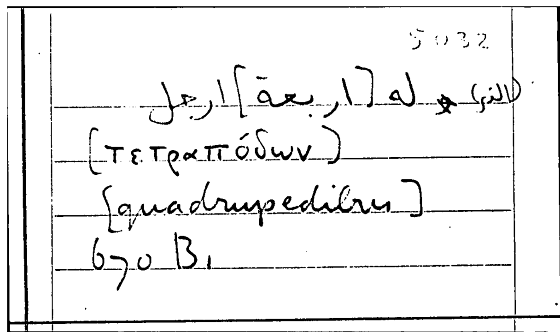 5032
(الذي) له [اربعة] ارجل
[τετραπόδων]
[quadrupedibus]
670 B,